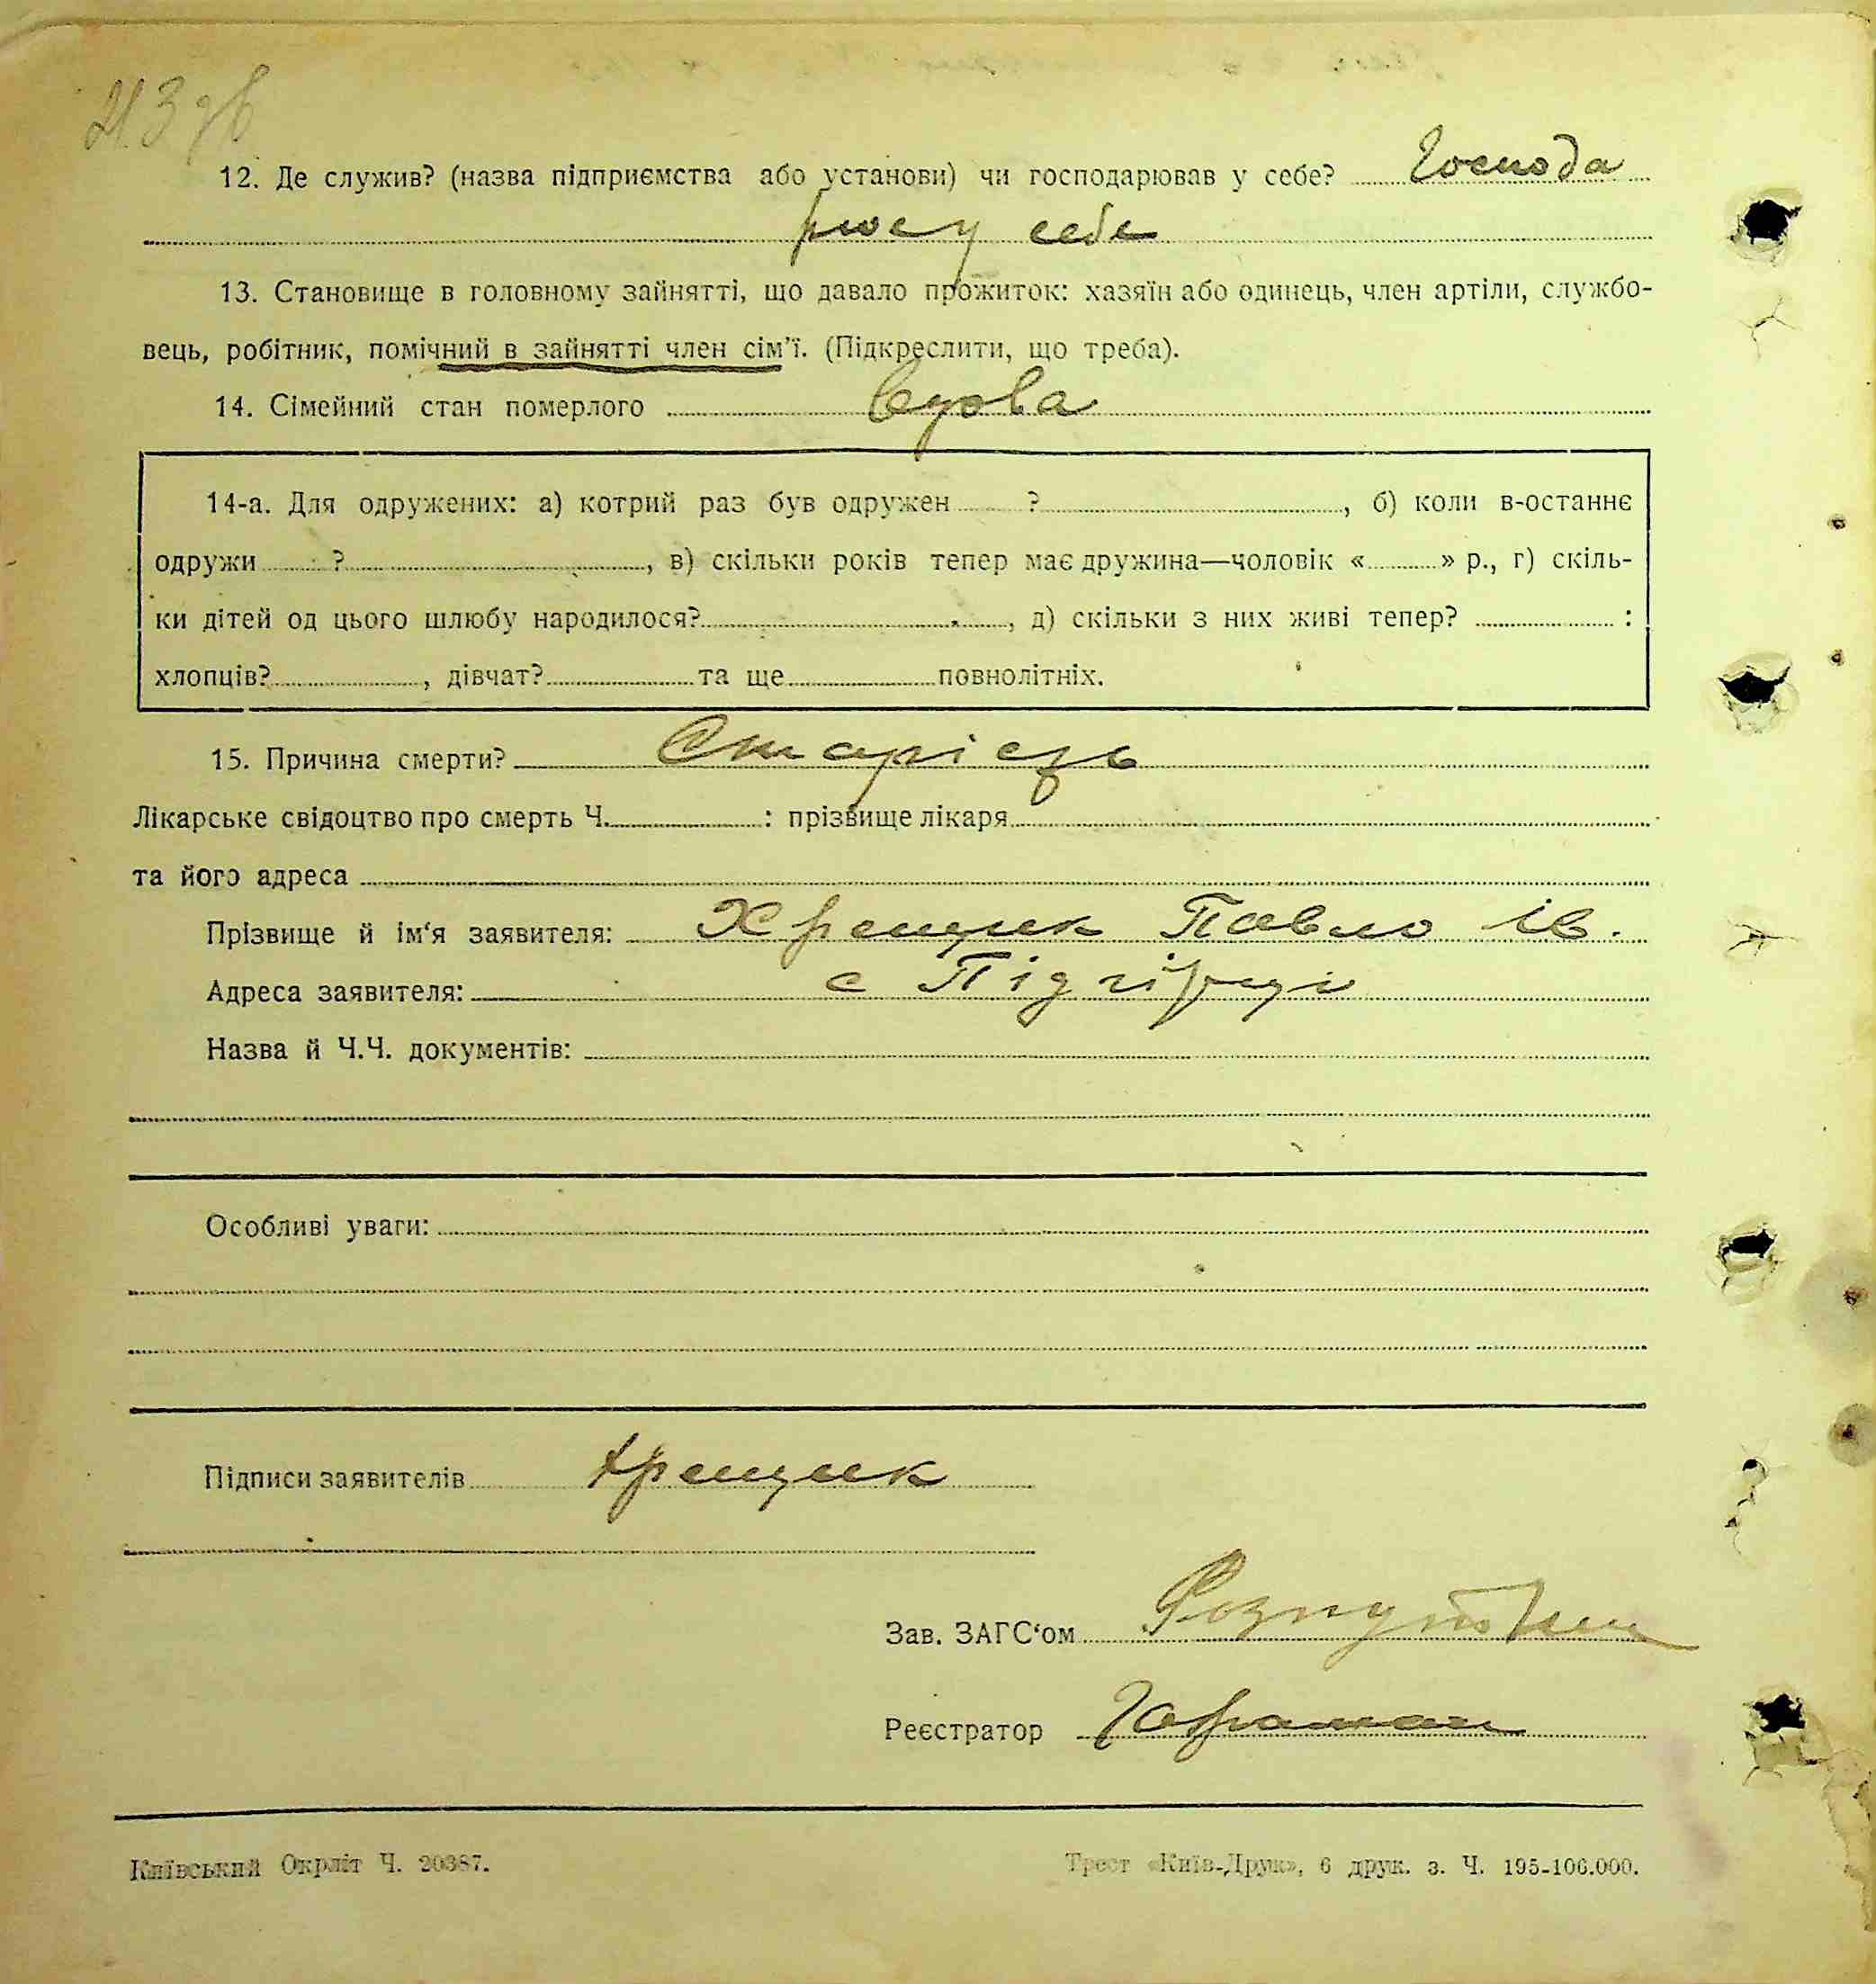 213 зв
12. Де служив? (назва підприємства або установи) чи господарював у себе? Господа
рює у себе
13. Становище в головному зайнятті, що давало прожиток: хазяїн або одинець, член артіли, службо-
вець, робітник, помічний в зайнятті член сім'ї. (Підкреслити, що треба).
14. Сімейний стан померлого вдова
14-а. Для одружених: а) котрий раз був одружен ? , б) коли в-останнє
одружи ? , в) скільки років тепер має дружина—чоловік « » р., г) скіль-
ки дітей од цього шлюбу народилося? , д) скільки з них живі тепер? :
хлопців? , дівчат? та ще повнолітніх.
15. Причина смерти? Старість
Лікарське свідоцтво про смерть Ч. : прізвище лікаря
та його адреса
Прізвище й ім'я заявителя: Хрещик Павло Ів.
Адреса заявителя: с Підгірці
Назва й Ч.Ч. документів:
Особливі уваги:
Підписи заявителів Хрещик
Зав. ЗАГС'ом
Реєстратор
Київський Окрліт Ч. 20387.
Трест «Київ-Друк», 6 друк. з. Ч. 195-100.000.